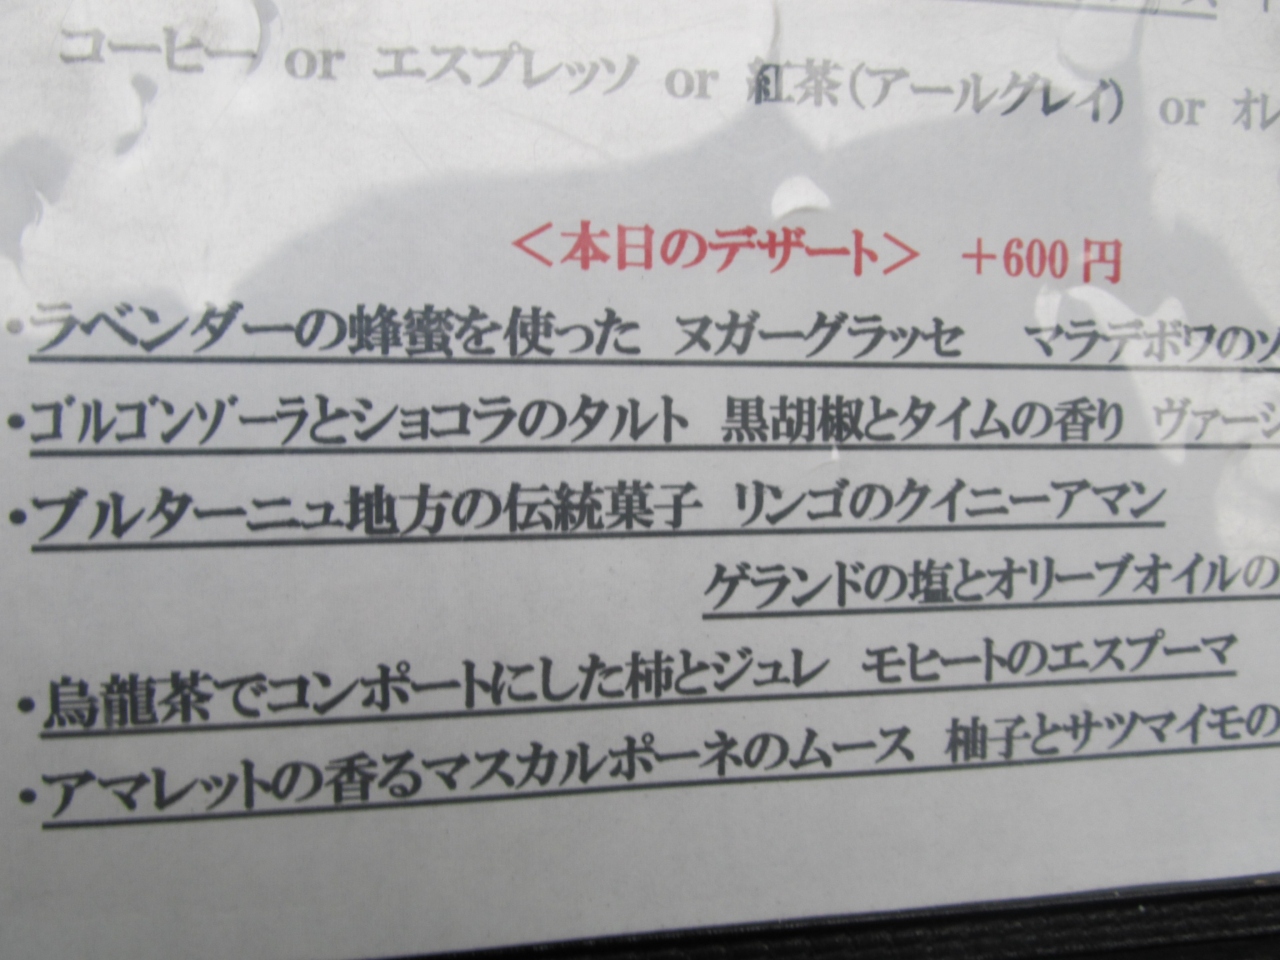 コーヒー or エスプレッソ or 紅茶(アールグレイ) or オレ
<本日のデザート> +600円
・ラベンダーの蜂蜜を使った ヌガーグラッセ マラデボワのソ
・ゴルゴンゾーラとショコラのタルト 黒胡椒とタイムの香り ヴァージ
・ブルターニュ地方の伝統菓子 リンゴのクイニーアマン
ゲランドの塩とオリーブオイルの
・烏龍茶でコンポートにした柿とジュレ モヒートのエスプーマ
・アマレットの香るマスカルポーネのムース 柚子とサツマイモの